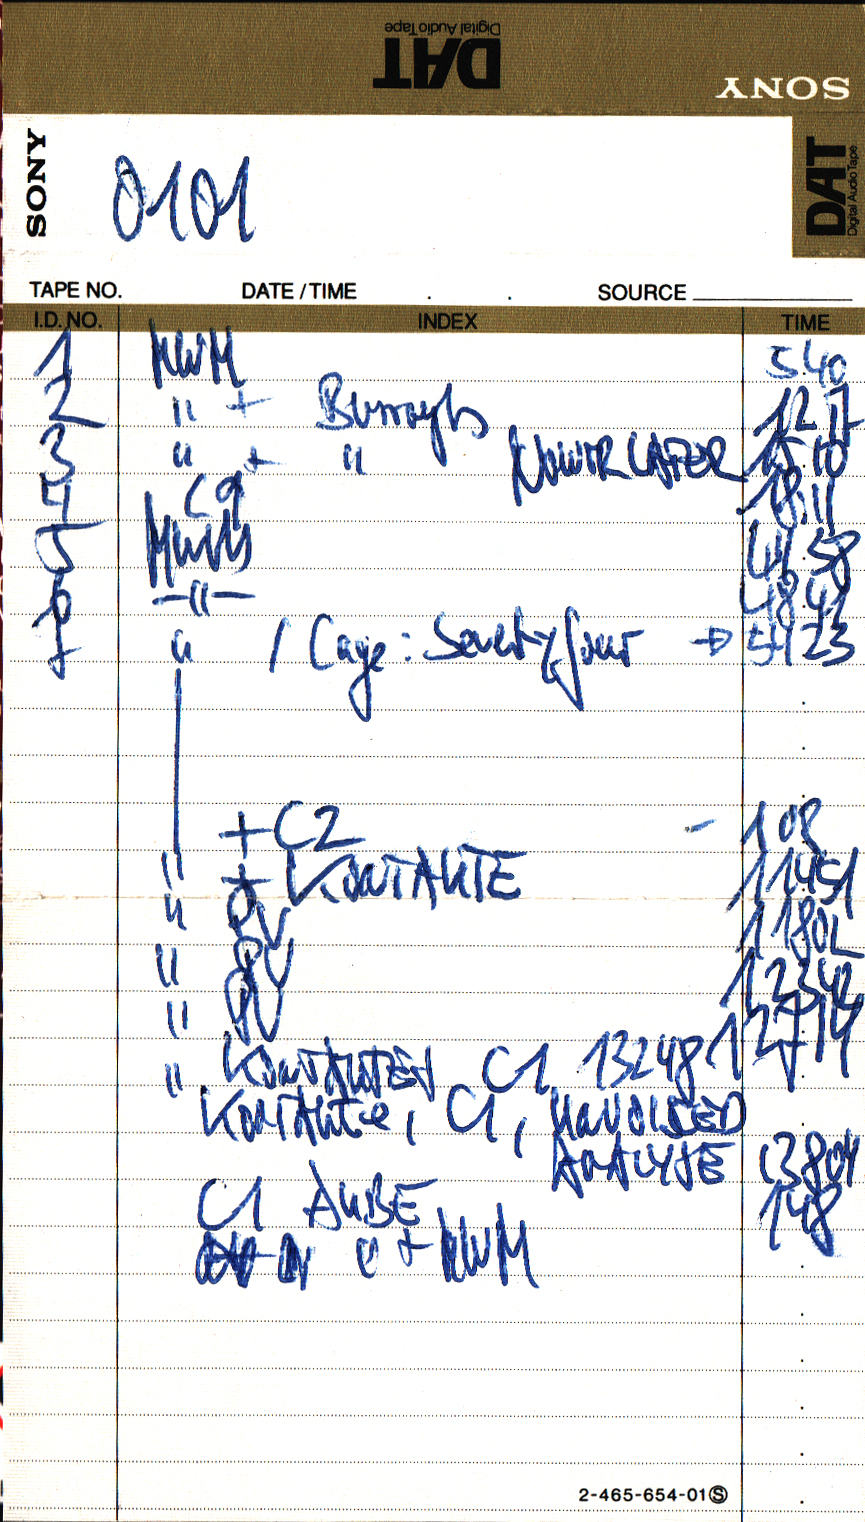 DAT
Digital Audio Tape
SONY
SONY
DAT
Digital Audio Tape
0101
TAPE NO. DATE / TIME . . SOURCE
I.D. NO. INDEX TIME
1 MWM 540
2 " + Burroughs 12 17
3 " + " 15 10
4 C9 18.11
5 MWM 44.58
6 -"- 48 41
7 " / Cage: Seventyfour → 54 23
+ C2 - 108
" + KONTAKTE 11451
" PV 11802
" PV 12342
" PV 12714
" KONTAKTEN C1 13248
KONTAKTE, C1,
ANALYSE 13804
C1 148
" + MWM
2-465-654-01 Ⓢ